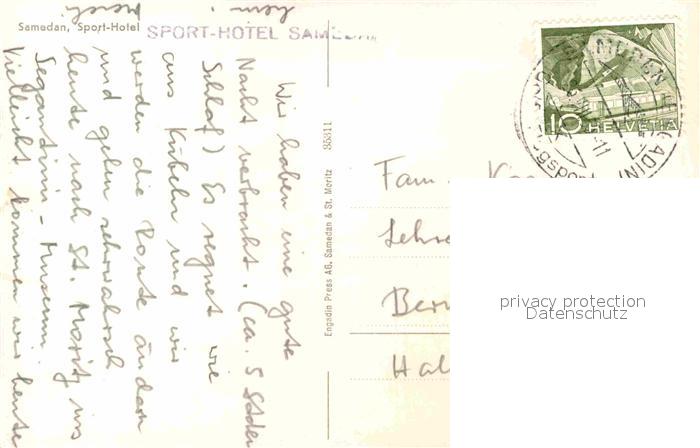 Samedan, Sport-Hotel
SPORT-HOTEL SAMEDAN
Wir haben eine gute
Nacht verbracht. (ca. 5 Stden
Schlaf) Es regnet wie
aus Kübeln und wir
werden die Route ändern
und gehen sehrwahrsch
heute nach St. Moritz ins
Segantini-Museum
Vielleicht kommen wir heute
heim.
Engadin Press AG, Samedan & St. Moritz 35311
10 HELVETIA
Fam.
Lehre
Ber
Hal
privacy protection
Datenschutz